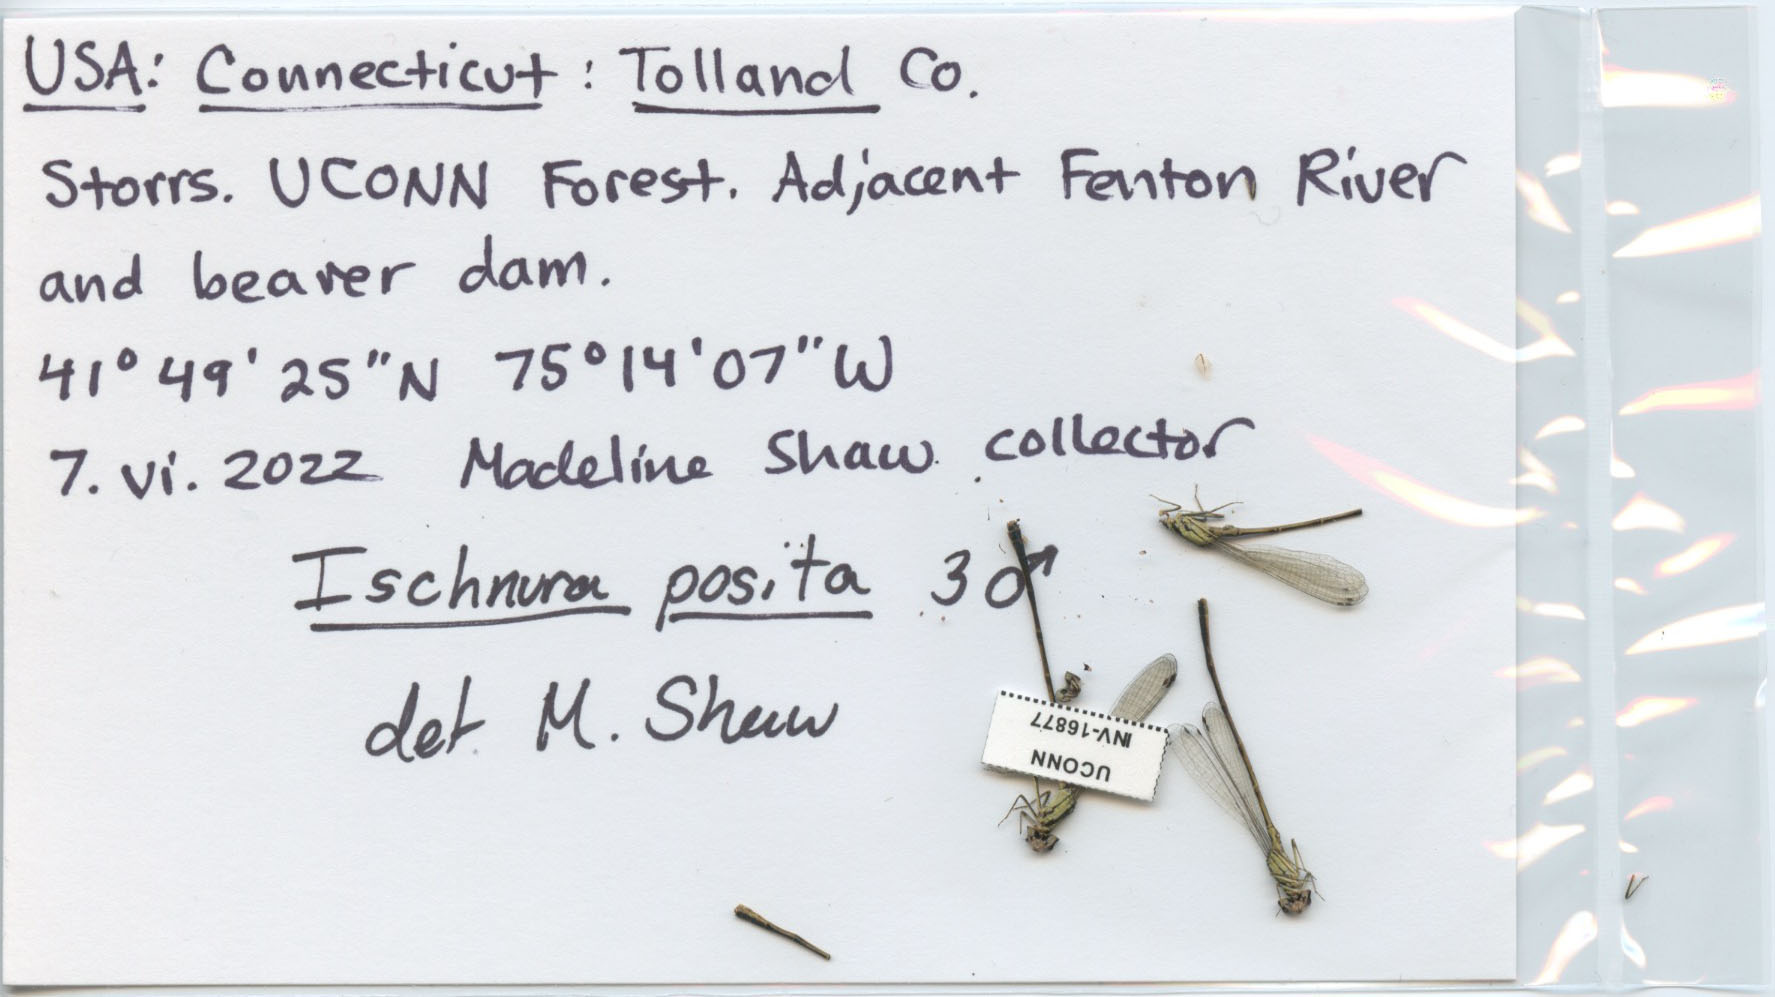 USA: Connecticut: Tolland Co.
Storrs. UCONN Forest. Adjacent Fenton River
and beaver dam.
41° 49' 25" N 75° 14' 07" W
7. vi. 2022 Madeline Shaw collector
Ischnura posita 3♂
det. M. Shaw
UCONN
INV-16877